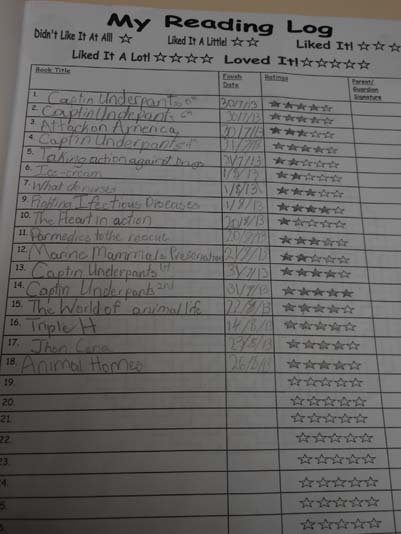 My Reading Log
Didn't Like It At All! ☆ Liked It A Little! ☆☆ Liked It! ☆☆☆
Liked It A Lot! ☆☆☆☆ Loved It! ☆☆☆☆☆
Book Title Finish Date Ratings Parent/Guardian Signature
1. Captin Underpants 5th 30/7/13
2. Captin Underpants 30/7/13
3. Attack on America 30/7/13
4. Captin Underpants
5. Taking action against Drugs /7/13
6. Ice-cream 1/8/13
7. What do nurses 1/8/13
9. Fighting Infectious Diseases 1/8/13
10. The Heart in action 20/8/13
11. Parmedics to the rescue
12. Marine Mammals Preservation 21/7/13
13. Captin Underpants 1st 31/7/13
14. Captin Underpants 2nd 31/7/13
15. The World of animal life 12/8/13
16. Triple H 14/8/13
17. Jhon Cena 23/5/13
18. Animal Homes 26/8/13
19.
20.
21.
22.
23.